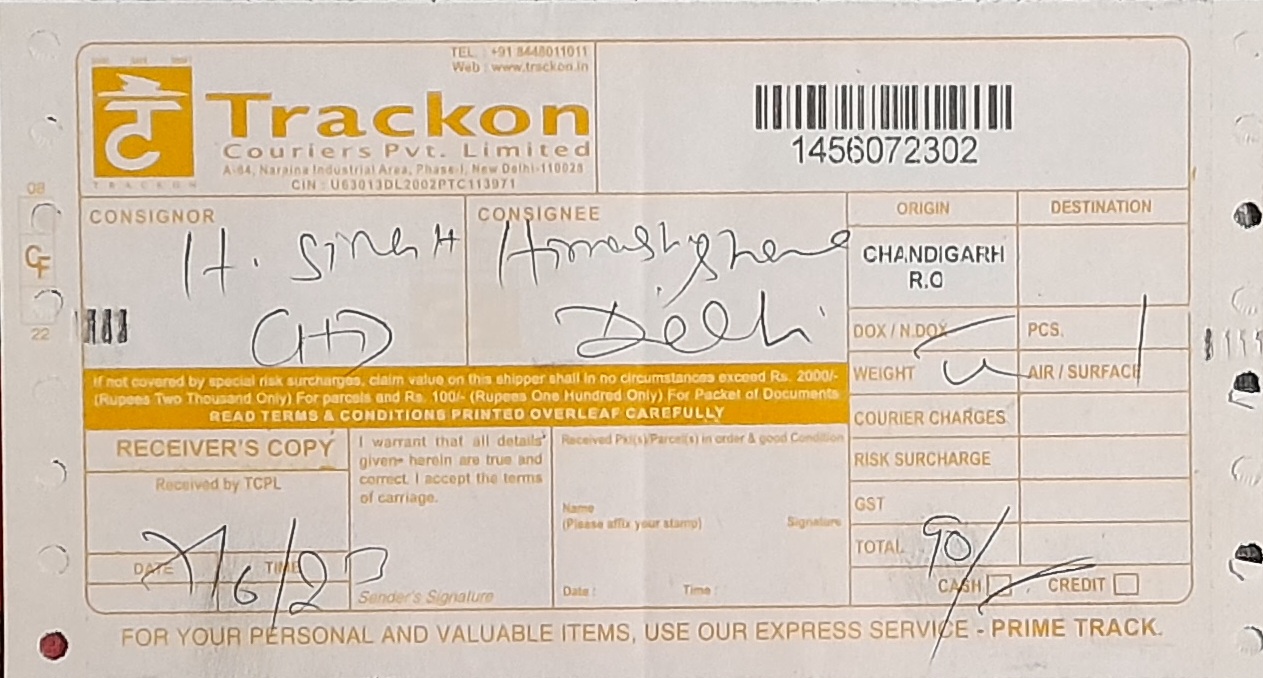 TEL. : +91 8448011011
Web : www.trackon.in
Trackon
Couriers Pvt. Limited
A-64, Naraina Industrial Area, Phase-I, New Delhi-110028
CIN : U63013DL2002PTC113971
TRACKON
1456072302
08
CF
22
CONSIGNOR
H. SINGH
CHD
CONSIGNEE
Delhi
ORIGIN
DESTINATION
CHANDIGARH
R.O
DOX / N.DOX
PCS.
WEIGHT
AIR / SURFACE
COURIER CHARGES
RISK SURCHARGE
GST
TOTAL 90/
CASH
CREDIT
If not covered by special risk surcharges, claim value on this shipper shall in no circumstances exceed Rs. 2000/-
(Rupees Two Thousand Only) For parcels and Rs. 100/- (Rupees One Hundred Only) For Packet of Documents
READ TERMS & CONDITIONS PRINTED OVERLEAF CAREFULLY
RECEIVER'S COPY
Received by TCPL
DATE
TIME
I warrant that all details
given herein are true and
correct. I accept the terms
of carriage.
Sender's Signature
Received Pkt(s)/Parcel(s) in order & good Condition
Name
(Please affix your stamp)
Signature
Date :
Time :
FOR YOUR PERSONAL AND VALUABLE ITEMS, USE OUR EXPRESS SERVICE - PRIME TRACK.